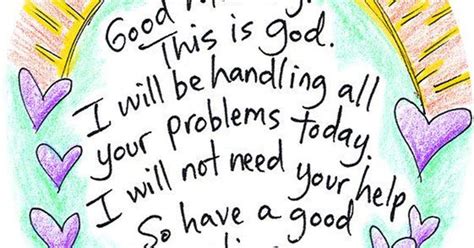 Good
This is god.
I will be handling all
your problems today.
I will not need your help
So have a good